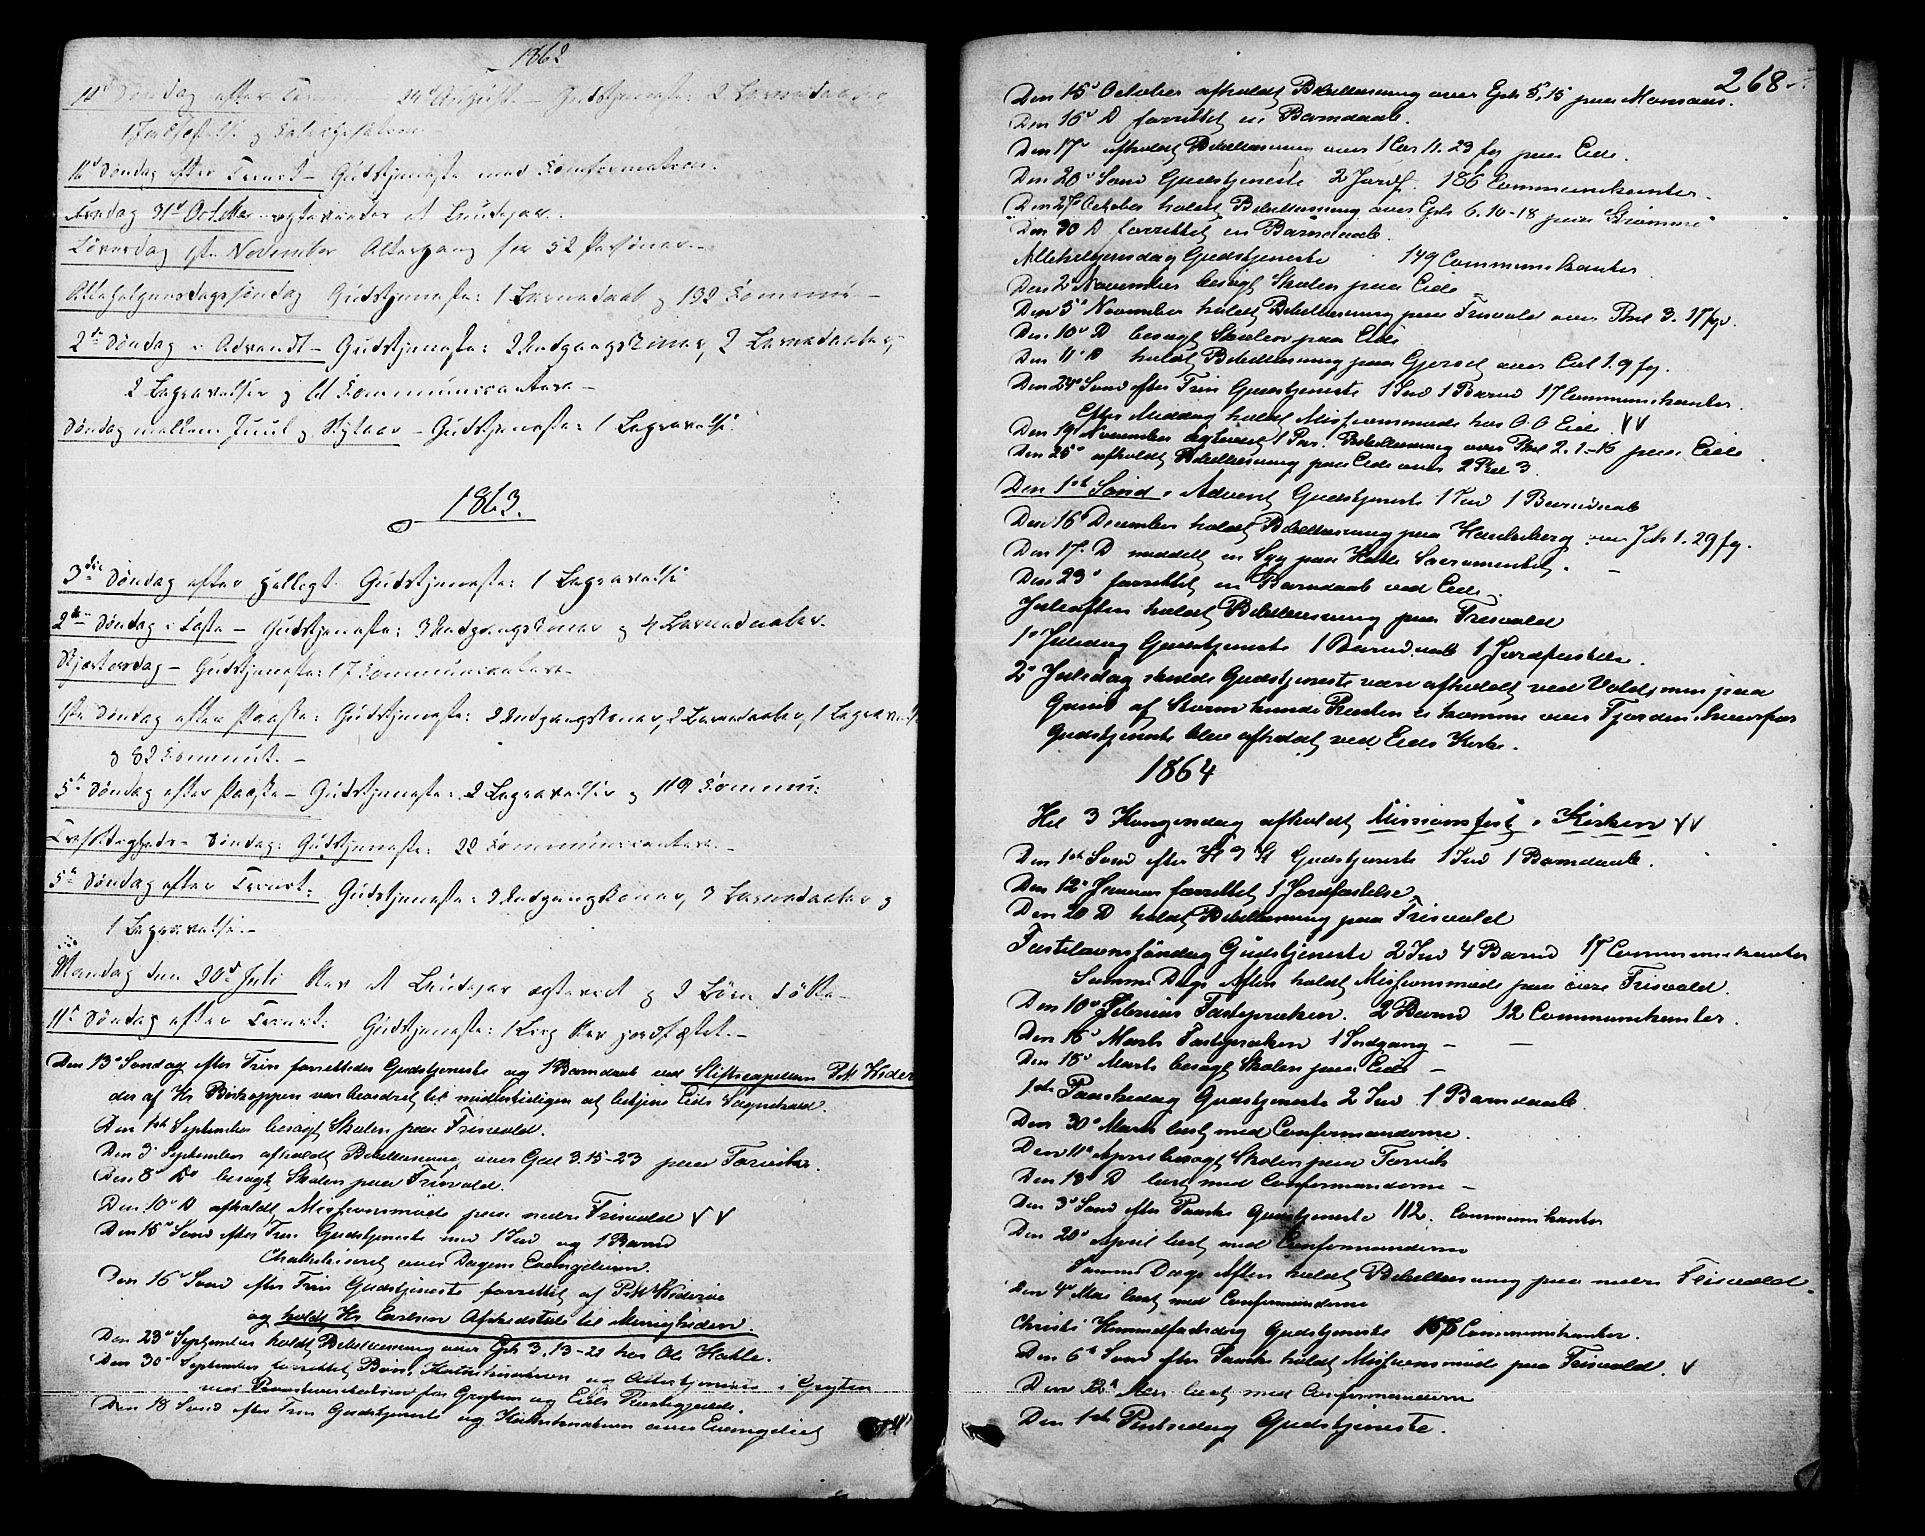 1862
Søndag efter 24 August – Gudstjeneste: 2 Barnedaaber
1 Jordfæstelse og
Søndag efter Trinit – Gudstjeneste med Confirmation.
Fredag 31te October ægteviedes et Brudepar.
Løverdag 1ste November Altergang for 52 Personer. –
Allehelgensdagssøndag Gudstjeneste: 1 Barnedaab og 132 Commun: –
2den Søndag i Advendt – Gudstjeneste: 2 Indgangskoner, 2 Barnedaaber,
2 Begravelser og Communicantere –
Søndag mellem Juul og Nytaar – Gudstjeneste: 1 Begravelse
1863.
3die Søndag efter Helligt. Gudstjeneste: 1 Begravelse
2den Søndag i Faste – Gudstjeneste: 3 Indgangskoner og 4 Barnedaaber.
Skjærtorsdag – Gudstjeneste: 17 Communicantere –
1ste Søndag efter Paaske: Gudstjeneste: 2 Indgangskoner, 2 Barnedaaber, 1 Begravelse
og 82 Commun. –
5te Søndag efter Paaske – Gudstjeneste: 2 Begravelser og 119 Commun:
Trefoldigheds-Søndag: Gudstjeneste: 22 Communicantere. –
5te Søndag efter Trinit: Gudstjeneste: 3 Indgangskoner, 3 Barnedaaber og
1 Begravelse. –
Mandag den 20de Juli blev et Brudepar ægteviet og 2 Børn døbte –
11te Søndag efter Trinit: Gudstjeneste: 1 Liig blev jordfæstet. –
Den 13de Søndag efter Trin forrettedes Gudstjeneste og 1 Barndaab ved Stiftscapellan P. M.
der af Hr Biskoppen var beordret til midlertidigen at betjene Eids Sognekald.
Den 1ste September besøgt Skolen paa Frisvold.
Den 3de September afholdt Bibellæsning over Gal 3.15–23 paa Torvik.
Den 8de Do besøgt Skolen paa Frisvold.
Den 10de D afholdt Missionsmøde paa nedre Frisvold V V
Den 15de Sønd efter Trin Gudstjeneste med 1 Ind og 1 Barnd
Chatekiseret over Dagens Evangelium.
Den 16de Sønd efter Trin Gudstjeneste forrettet af P. M.
og holdt Hr Carlsen Afskedstale til Menigheden.
Den 23de September holdt Bibellæsning over Eph 3.13–21 hos Ole Hatle.
Den 30te September forrettet Bøn, Katechisation og Altertjeneste i Grytten
ved Provstevisitatsen for Gryttens og Eids Præstegjelde.
Den 18 Sønd efter Trin Gudstjeneste og Kathekisation over Evangeliet
268
Den 15de October afholdt Bibellæsning over Eph 5,15 paa
Den 16de D forrettet en Barndaab.
Den 17de afholdt Bibellæsning over 1 Cor 11.23 fg paa Eide.
Den 20de Sønd Gudstjeneste 2 Jordf. 186 Communikanter
Den 27de October holdt Bibellæsning over Eph 6.10–18 paa
Den 30 D forrettet en Barndaab
Allehelgensdag Gudstjeneste 149 Communikanter
Den 2de November besøgt Skolen paa Eide
Den 5te November holdt Bibellæsning paa Frisvold over Phil 3.17 fg.
Den 10de D besøgt Skolen paa Eide
Den 11te D holdt Bibellæsning paa Gjerset over Col 1.9 fg.
Den 24de Sønd efter Trin Gudstjeneste 1 Ind 1 Barnd 17 Communikanter.
Efter Middag holdt Missionsmøde hos O. O Eide. V V
Den 19 November ægteviet 1 Par. Bibellæsning over Phil 2.1–16 paa Eide.
Den 25de afholdt Bibellæsning paa Eide over
Den 1ste Sønd i Advent Gudstjeneste 1 Ind 1 Barndaab
Den 16de December holdt Bibellæsning paa over Joh 1.29 fg.
Den 17. D meddelt en Syg paa Hatle Sacramentet. –
Den 23de forrettet en Barndaab ved Eide.
Juleaften holdt Bibellæsning paa Frisvold
1ste Juledag Gudstjeneste 1 Barndaab 1 Jordfæstelse.
2de Juledag skulde Gudstjeneste være afholdt ved Volds men paa
Grund af Storm kunde Præsten ei komme over Fjorden, hvorfor
Gudstjeneste blev afholdt ved Eids Kirke.
1864
Hel 3 Kongersdag afholdt Missionsfest i Kirken V V
Den 1ste Sønd efter H 3 K Gudstjeneste 1 Ind 1 Barndaab.
Den 12te Januar forrettet 1 Jordfæstelse
Den 20 D holdt Bibellæsning paa Frisvold
Fastelavnssøndag Gudstjeneste 2 Ind 4 Barnd 17 Communikanter
Samme Dags Aften holdt Missionsmøde paa øvre Frisvold.
Den 10de Februar Fasteprædken. 2 Barnd 12 Communikanter.
Den 16de Marts Fasteprædken 1 Indgang – –
Den 18de Marts besøgt Skolen paa Eide –
1ste Paaskedag Gudstjeneste 2 Ind 1 Barndaab
Den 30te Marts læst med Confirmanderne.
Den 11te April besøgt Skolen paa Torvik
Den 13de D læst med Confirmanderne –
Den 3de Sønd efter Paaske Gudstjeneste 112. Communikanter
Den 20de April læst med Confirmanderne
Samme Dags Aften holdt Bibellæsning paa nedre Frisvold.
Den 4de Mai læst med Confirmanderne
Christi Himmelfartsdag Gudstjeneste Communikanter.
Den 6te Sønd efter Paaske holdt Missionsmøde paa Frisvold. V
Den 12te Mai læst med Confirmanderne
Den 1ste Pintsedag Gudstjeneste.